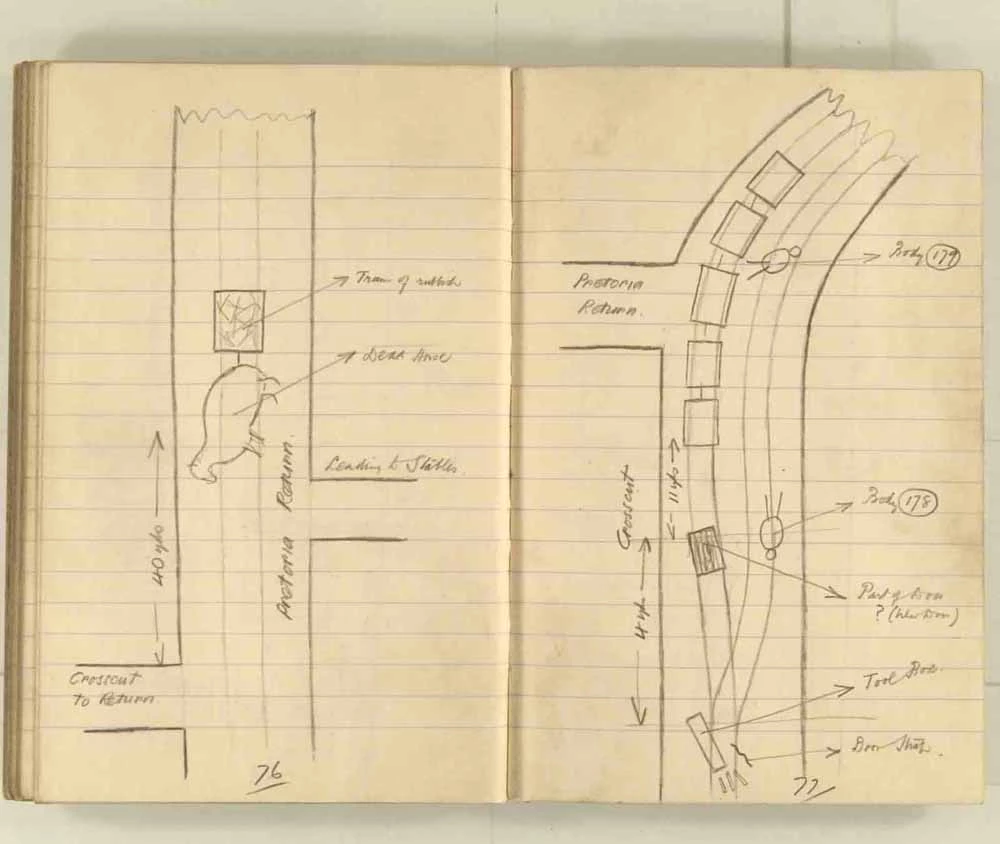 Tram of rubbish
Dead Horse
Leading to Stables.
Pretoria Return.
40 yds
Crosscut
to Return.
76
Pretoria
Return.
Body 179
11 yds
Crosscut
Body 178
4 yds
Part of Door
? (New Door)
Tool Box.
Door Strap.
77